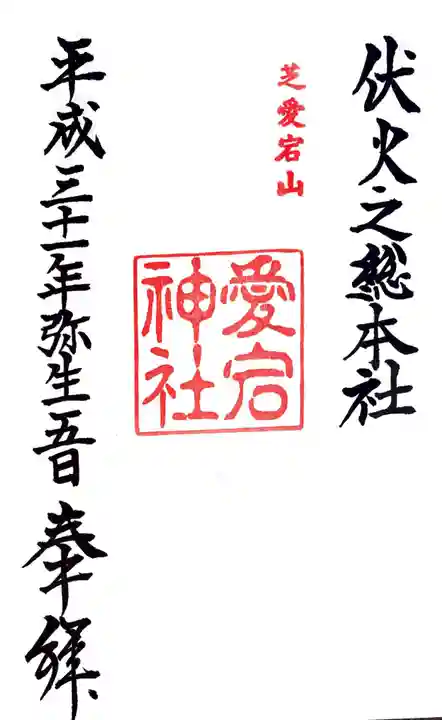 伏火之総本社
芝愛宕山
愛宕
神社
平成三十一年弥生五日 奉拝